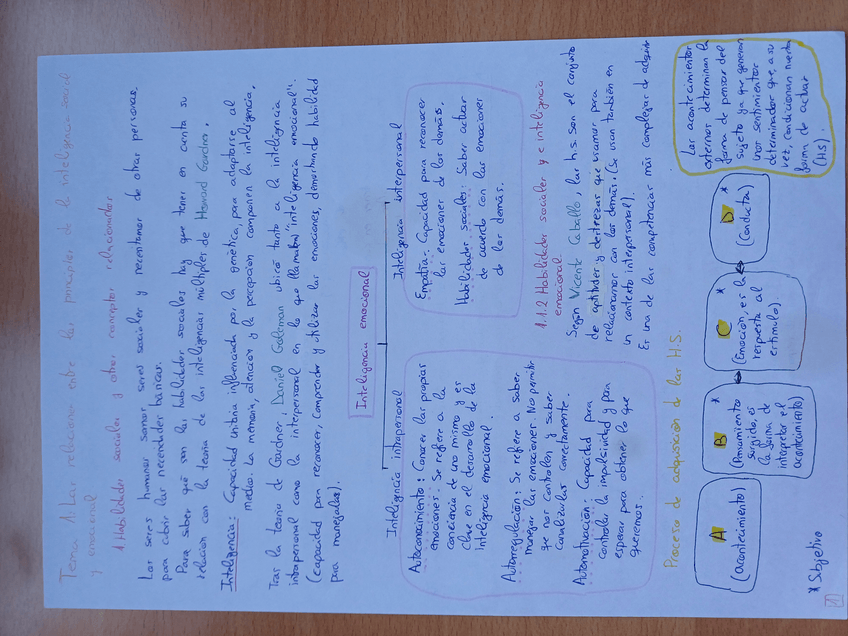 Tema 1: Las relaciones entre los principios de la inteligencia social
y emocional
1 Habilidades sociales y otros conceptos relacionados
Los seres humanos somos seres sociales y necesitamos de otras personas,
para cubrir las necesidades básicas.
Para saber qué son las habilidades sociales hay que tener en cuenta su
relación con la teoría de las inteligencias múltiples de Howard Gardner.
Inteligencia: Capacidad unitaria influenciada por la genética, para adaptarse al
medio. La memoria, atención y la percepción componen la inteligencia.
Tras la teoría de Gardner, Daniel Goleman ubicó tanto a la inteligencia
intrapersonal como la interpersonal en lo que llamaba "inteligencia emocional".
(Capacidad para reconocer, comprender y utilizar las emociones, demostrando habilidad
para manejarlas).
Inteligencia emocional
Inteligencia intrapersonal
Autoconocimiento: Conocer las propias
emociones. Se refiere a la
conciencia de uno mismo y es
clave en el desarrollo de la
inteligencia emocional.
Autorregulación: Se refiere a saber
manejar las emociones. No permitir
que nos controlen y saber
canalizarlas correctamente.
Automotivación: Capacidad para
controlar la impulsividad y para
esperar para obtener lo que
queremos.
Inteligencia interpersonal
Empatía: Capacidad para reconocer
las emociones de los demás.
Habilidades sociales: Saber actuar
de acuerdo con las emociones
de los demás.
1.1.2 Habilidades sociales y e inteligencia
emocional.
Según Vicente Caballo, las h.s. son el conjunto
de aptitudes y destrezas que usamos para
relacionarnos con los demás. (Se usan también en
un contexto interpersonal).
Es una de las competencias más complejas de adquirir
Proceso de adquisición de las H.S.
A
(acontecimiento)
B *
(Pensamiento
surgido, es
la forma de
interpretar el
acontecimiento)
C *
(Emoción, es la
respuesta al
estímulo)
D *
(conducta)
Los acontecimientos
externos determinan la
forma de pensar del
sujeto ya que generan
unos sentimientos
determinados que, a su
vez, condicionan nuestra
forma de actuar
(HS).
* Subjetivo